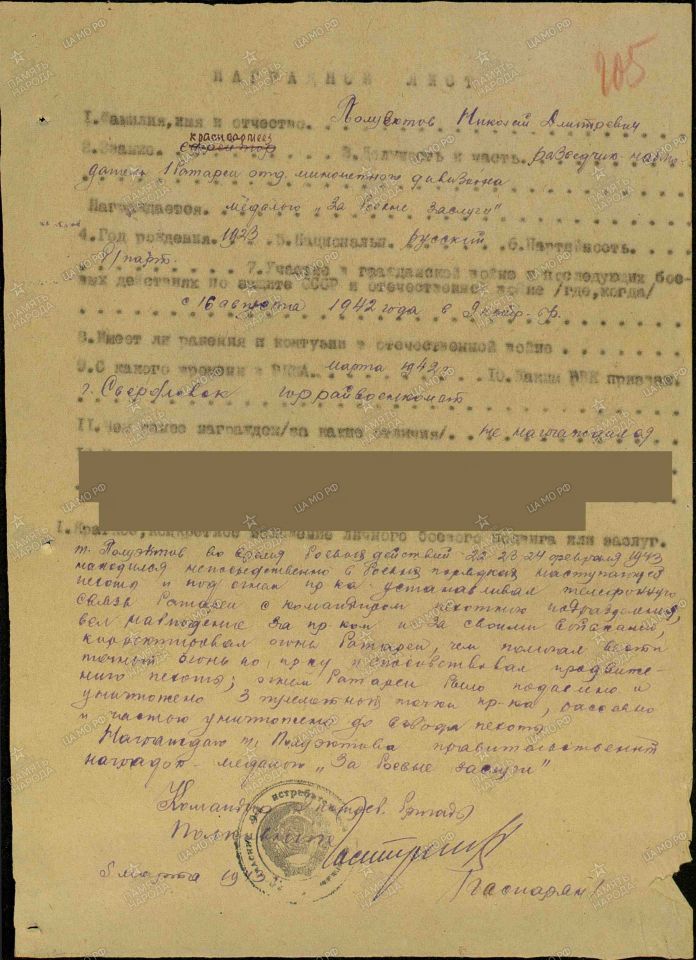 205
НАГРАДНОЙ ЛИСТ
1. Фамилия, имя и отчество. Полуэктов Николай Дмитревич
красноармеец
2. Звание. ефрейтор 3. Должность и часть. разведчик наблю-
датель 1 батареи отд. минометного дивизиона
Награждается. медалью „За боевые заслуги"
4. Год рождения. 1923 5. Национальн. русский 6. Партийность.
б/парт. 7. Участие в гражданской войне и последующих бое-
вых действиях по защите СССР и отечественной войне /где, когда/
с 16 августа 1942 года в
8. Имеет ли ранения и контузии в отечественной войне
9. С какого времени в РККА. марта 1942 г 10. Каким РВК призван.
г. Свердловск горрайвоенкомат
11. Чем ранее награжден /за какие отличия/. не награждался
1. Краткое, конкретное изложение личного боевого подвига или заслуг.
т. Полуэктов во время боевых действий 22-23-24 февраля 1943
находился непосредственно в боевых порядках наступающей
пехоты и под огнем пр-ка устанавливал телефонную
связь батареи с командиром пехотного подразделения,
вел наблюдение за пр-ком и за своими
корректировал огонь батареи, чем помогал вести
точный огонь по пр-ку и способствовал продвиже-
нию пехоты; огнем батареи было подавлено и
уничтожено 3 огневых точки пр-ка, рассеяно
и частью уничтожено до взвода пехоты
Награждаю т. Полуэктова правительственной
наградой - медалью „За боевые заслуги"
Командир бригады
Полковник
5 марта 1943